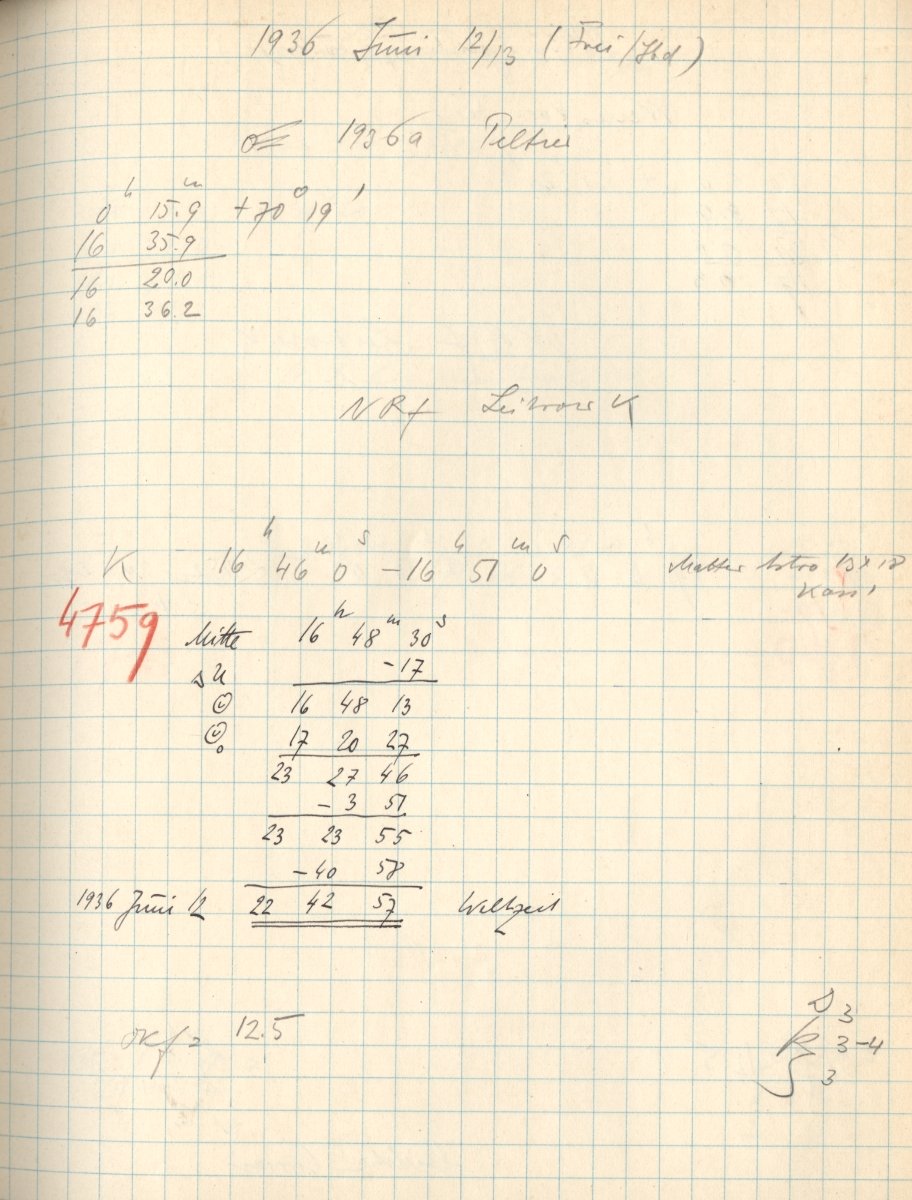 1936 Juni 12/13 (Frei/Sbd)
1936a Peltier
0h 15.9m +70° 19'
16 35.9
16 20.0
16 36.2
NRf
K 16h 46m 0s - 16h 51m 0s 13 x 18
4759
Mitte 16h 48m 30s
-17
16 48 13
17 20 27
23 27 46
- 3 51
23 23 55
-40 58
1936 Juni 12 22 42 57 Weltzeit
= 12.5
3
3-4
3